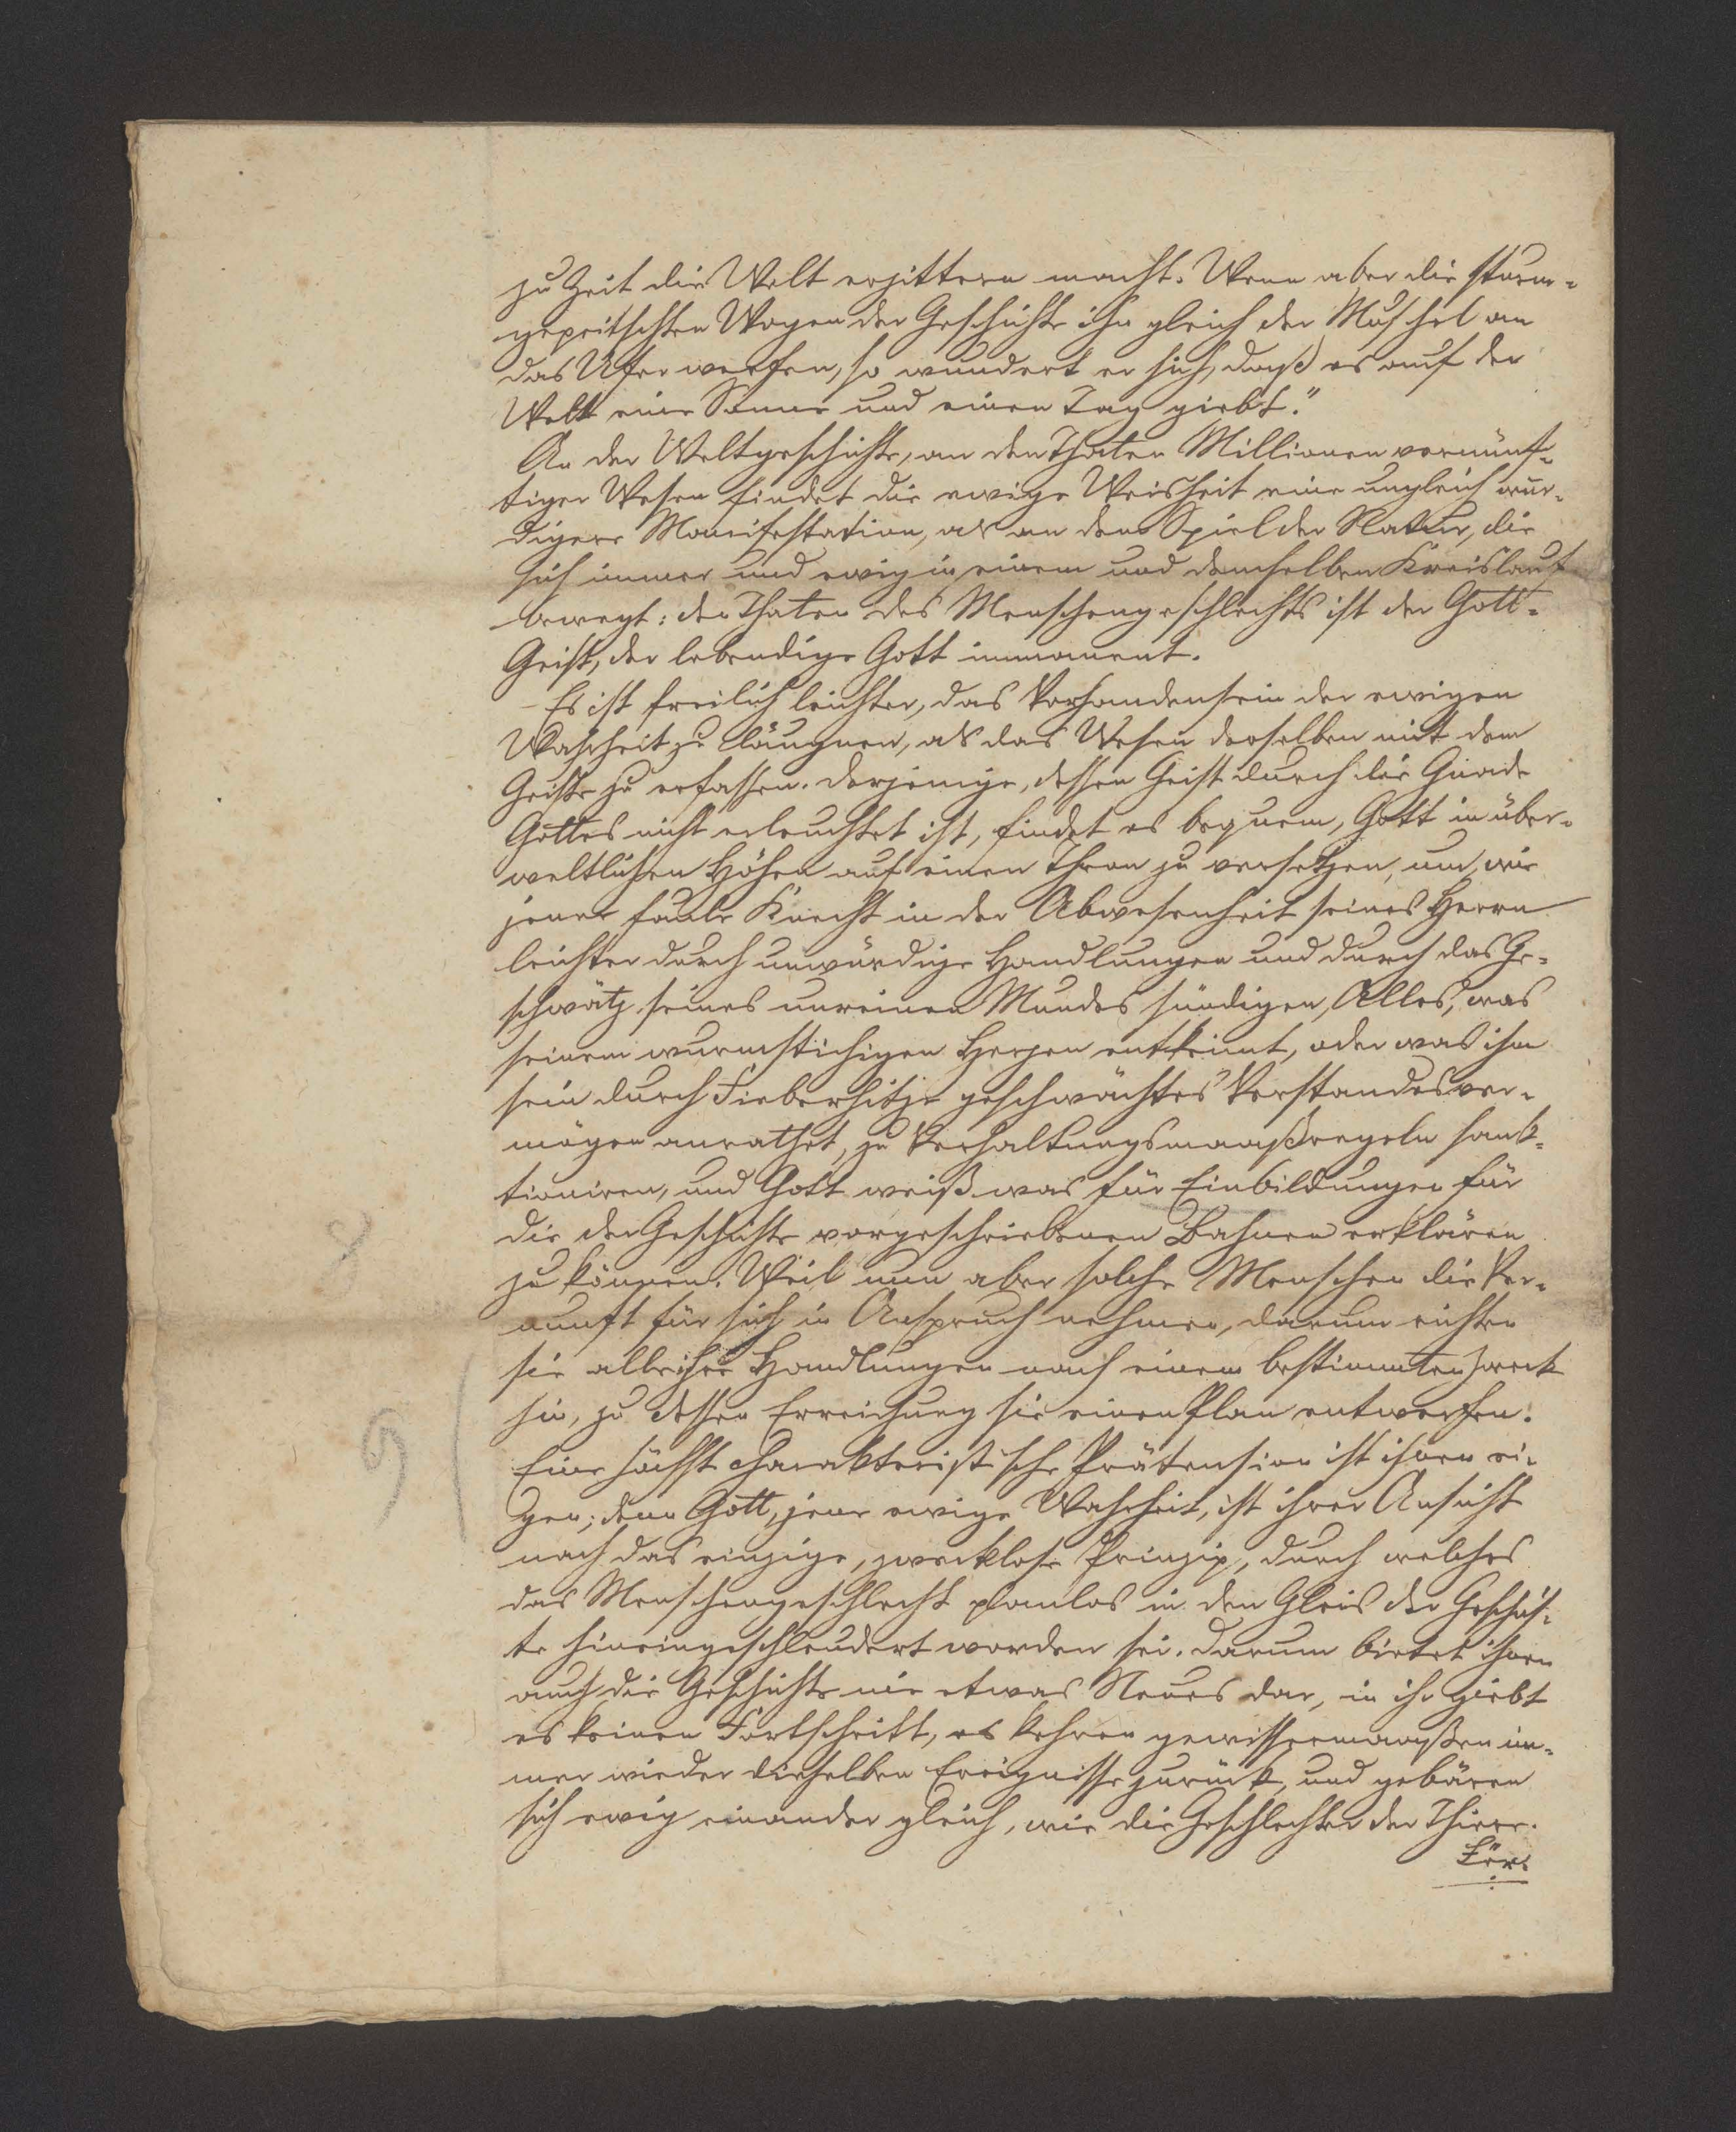 zu Zeit die Welt erzittern macht. Wenn aber die sturm-
gepeitschten Wogen der Geschichte ihn gleich der Muschel an
das Ufer werfen, so wundert er sich, daß es auf der
Welt eine Sonne und einen Tag giebt."
An der Weltgeschichte, an den Thaten Millionen vernünf-
tiger Wesen findet die ewige Weisheit eine ungleich wür-
digere Manifestation, als an dem Spiel der Natur, die
sich immer und ewig in einem und demselben Kreislauf
bewegt: den Thaten des Menschengeschlechts ist der Gott-
Geist, der lebendige Gott immanent.
- Es ist freilich leichter, das Vorhandensein der ewigen
Wahrheit zu läugnen, als das Wesen derselben mit dem
Geiste zu erfassen. Derjenige, dessen Geist durch die Gnade
Gottes nicht erleuchtet ist, findet es bequem, Gott in über-
weltlichen Höhen auf einen Thron zu versetzen, um, wie
jener faule Knecht in der Abwesenheit seines Herrn
leichter durch unwürdige Handlungen und durch das Ge-
schwätz seines unreinen Mundes sündigen, Alles, was
seinem wurmstichigen Herzen entkeimt, oder was ihm
sein durch Fieberhitze geschwächtes Verstandesver-
mögen anrathet, zu Verhaltungsmaaßregeln sank-
tioniren, und Gott weiß was für Einbildungen für
die der Geschichte vorgeschriebenen Bahnen erklären
zu können. Weil nun aber solche Menschen die Ver-
nunft für sich in Anspruch nehmen, darum richten
sie alle ihre Handlungen nach einem bestimmten Zweck
hin, zu dessen Erreichung sie einen Plan entwerfen.
Eine höchst charakteristische Prätension ist ihnen ei-
gen; denn Gott, jene ewige Wahrheit, ist ihrer Ansicht
nach das einzige, zwecklose Prinzip, durch welches
das Menschengeschlecht planlos in den Gleis der Geschich-
te hineingeschleudert worden sei. Darum bietet ihnen
auch die Geschichte nie etwas Neues dar, in ihr giebt
es keinen Fortschritt, es kehren gewissermaaßen im-
mer wieder dieselben Ereignisse zurück, und gebären
sich ewig einander gleich, wie die Geschlechter der Thiere.
Für
8
9